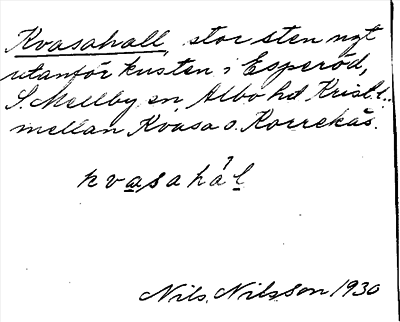 Kvasahall, stor sten nyt
utanför kusten i Esperöd,
S. Mellby sn, Albo hd Krist. l.
mellan Kvasa o. Korrekås.
kvasahal
Nils Nilsson 1930